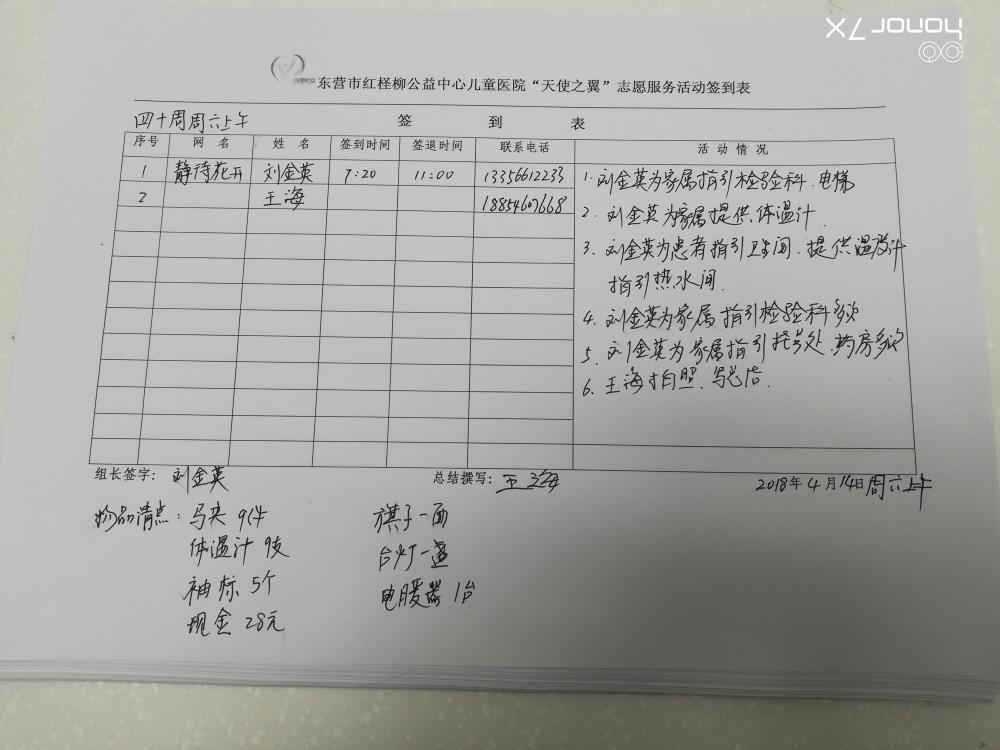 honor 7X
东营市红柽柳公益中心儿童医院“天使之翼”志愿服务活动签到表
四十周周六上午 签 到 表
序号 网 名 姓 名 签到时间 签退时间 联系电话 活 动 情 况
1 静待花开 刘金英 7:20 11:00 13356612233
2 王海 18854607668
1.刘金英为家属指引检验科.电梯
2.刘金英为家属提供体温计.
3.刘金英为患者指引卫生间.提供温度计
指引热水间.
4.刘金英为家属指引检验科多次
5.刘金英为家属指引挂号处.药房多次
6.王海拍照.写总结.
组长签字: 刘金英 总结撰写: 王海 2018年4月14日周六上午
物品清点: 马夹9件 旗子一面
体温计9支 台灯一盏
袖标5个 电暖器1台
现金28元